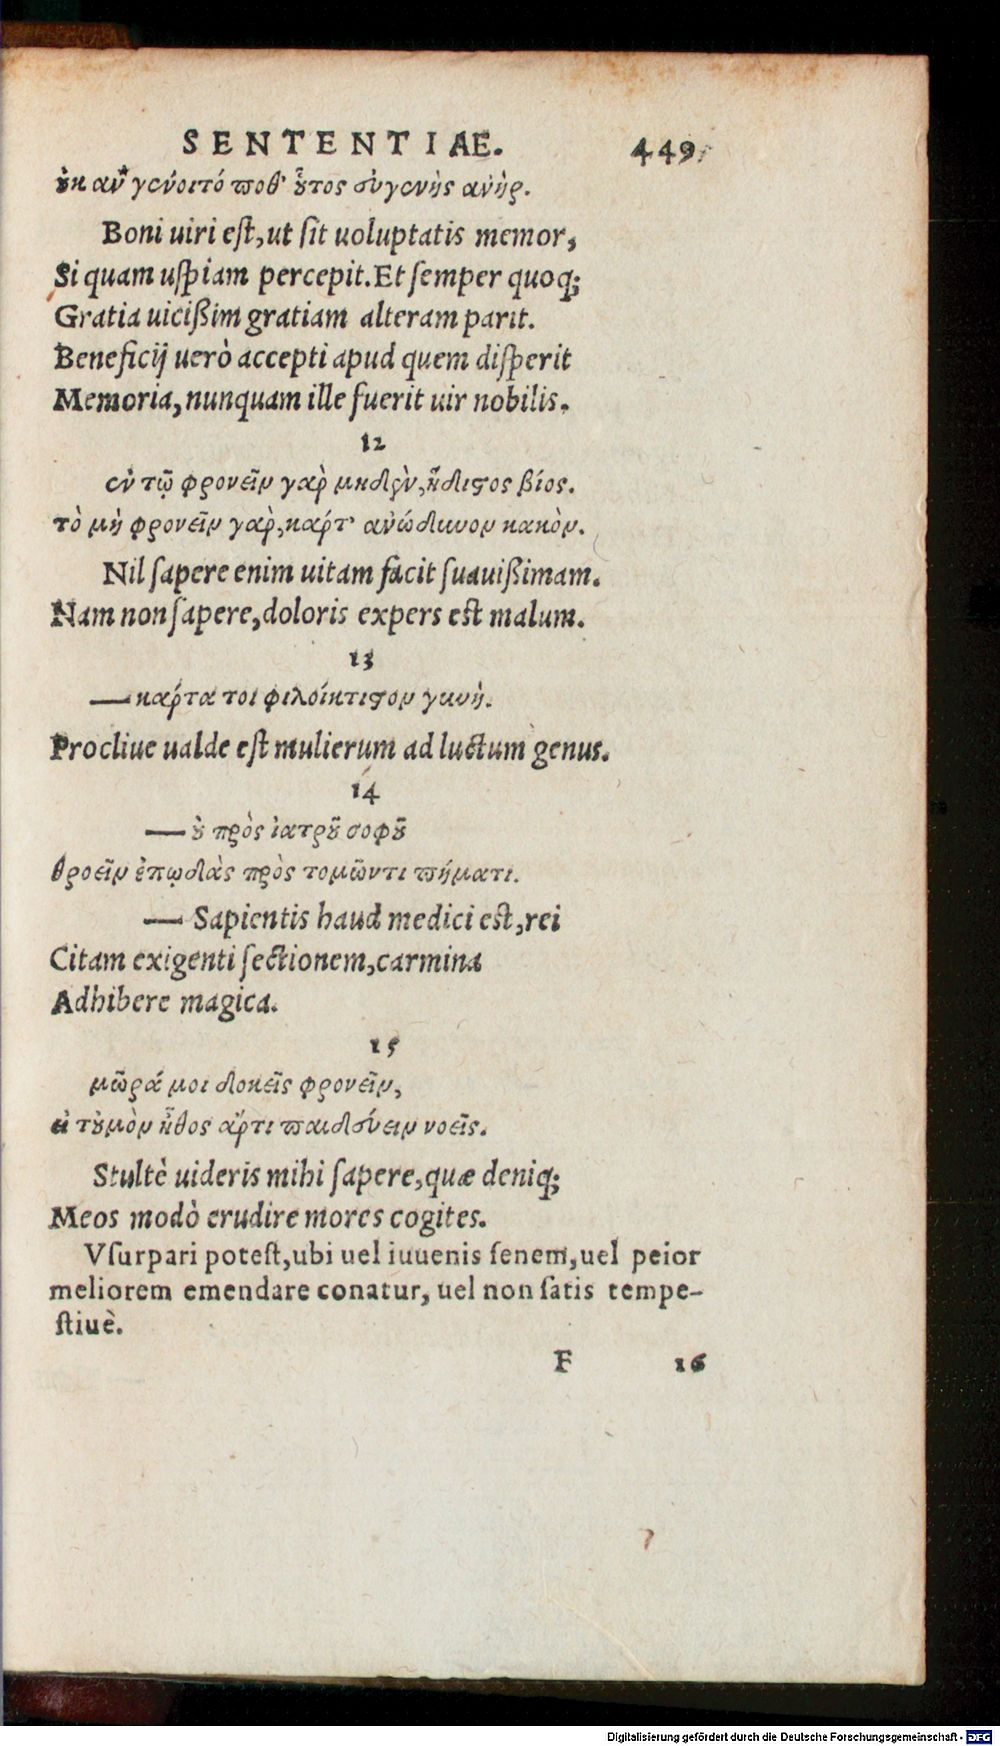 SENTENTIAE. 449
ȣ̓κ ἂν γένοιτό ποθ' ȣ̔͂τος εὐγενὴς ἀνήρ.
Boni uiri eſt, ut ſit uoluptatis memor,
Si quam uſpiam percepit. Et ſemper quoq;
Gratia uicißim gratiam alteram parit.
Beneficij uerò accepti apud quem diſperit
Memoria, nunquam ille fuerit uir nobilis.
12
ἐν τῷ φρονεῖν γὰρ μηδὲν, ἥδιστος βίος.
τὸ μὴ φρονεῖν γὰρ, κάρτ' ἀνώδυνον κακόν.
Nil ſapere enim uitam facit ſuauißimam.
Nam non ſapere, doloris expers est malum.
13
— κάρτα τοι φιλοίκτιστον γυνή.
Procliue ualde eſt mulierum ad luctum genus.
14
— ȣ̓ πρὸς ἰατρȣ͂ σοφȣ͂
θροεῖν ἐπῳδὰς πρὸς τομῶντι πήματι.
— Sapientis haud medici est, rei
Citam exigenti ſectionem, carmina
Adhibere magica.
15
μῶρά μοι δοκεῖς φρονεῖν,
εἰ τȣ̓μὸν ἦθος ἄρτι παιδεύειν νοεῖς.
Stultè uideris mihi ſapere, quæ deniq;
Meos modò erudire mores cogites.
Vſurpari poteſt, ubi uel iuuenis ſenem, uel peior
meliorem emendare conatur, uel non ſatis tempe-
ſtiuè.
F 16
Digitalisierung gefördert durch die Deutsche Forschungsgemeinschaft - DFG